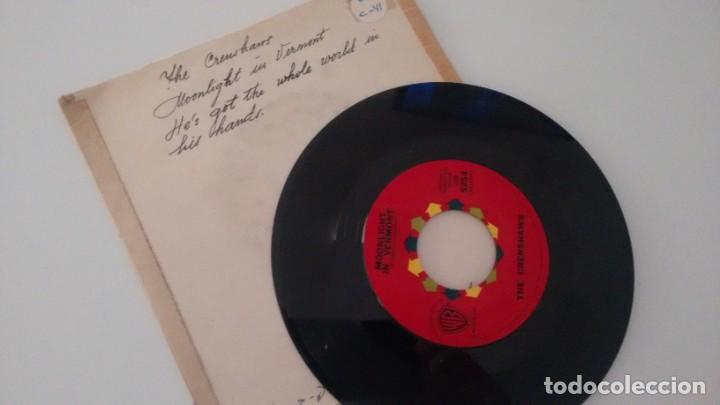 C-41
The Crenshaws
Moonlight in Vermont
He's got the whole world in
his hands.
MOONLIGHT
IN VERMONT
5254
THE CRENSHAWS
WB
todocoleccion